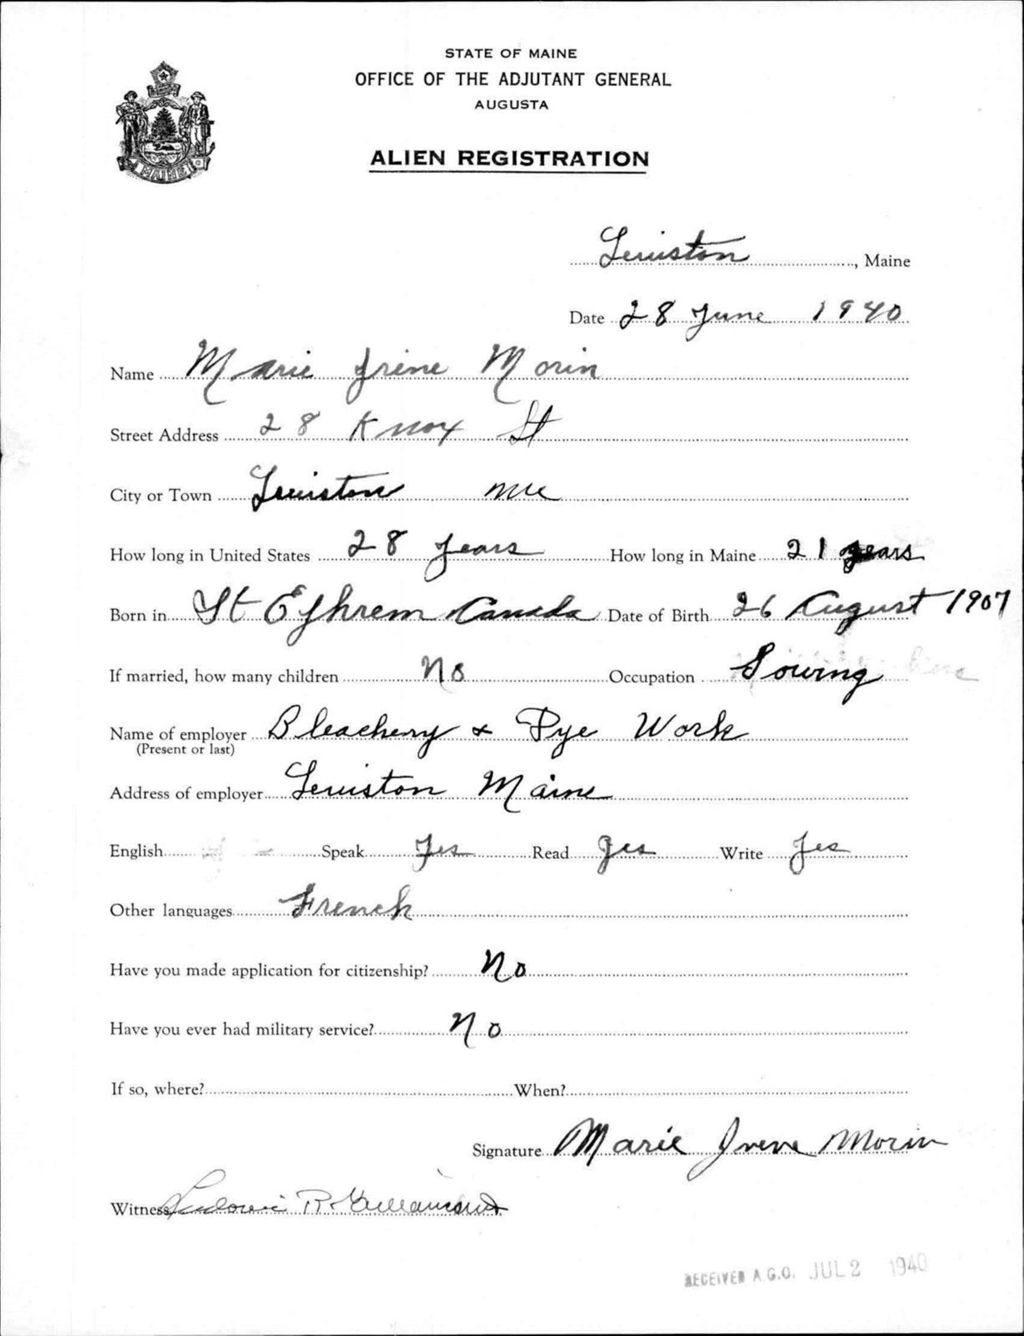 STATE OF MAINE
OFFICE OF THE ADJUTANT GENERAL
AUGUSTA
ALIEN REGISTRATION
MAINE
Lewiston, Maine
Date 28 June 1940
Name Marie Irene Morin
Street Address 28 Knox St
City or Town Lewiston Me
How long in United States 28 years How long in Maine 21 years
Born in St Ephrem Canada Date of Birth 26 August 1907
If married, how many children No Occupation Sowing
Name of employer Bleachery & Dye Work
(Present or last)
Address of employer Lewiston Maine
English Speak Yes Read Yes Write Yes
Other languages French
Have you made application for citizenship? No
Have you ever had military service? No
If so, where? When?
Signature Marie Irene Morin
Witness R.
RECEIVED A.G.O. JUL 2 1940